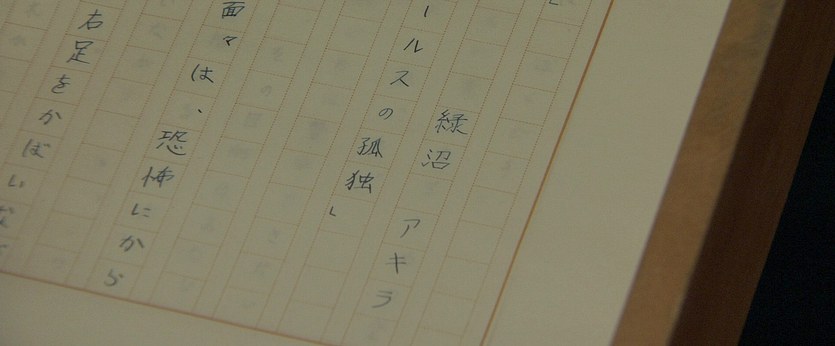 緑沼 アキラ
ールスの孤独」
面々は、恐怖にから
右足をかばいな